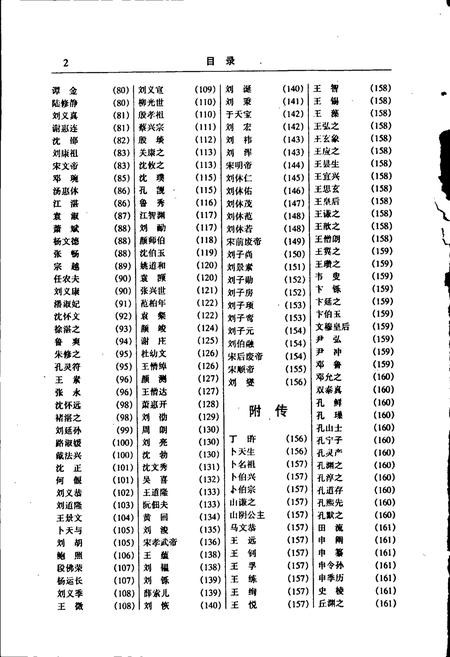 2 目录
谭金 (80)
陆修静 (80)
刘义真 (81)
谢惠连 (81)
沈邵 (82)
刘康祖 (83)
宋文帝 (83)
邓琬 (85)
汤惠休 (86)
江湛 (86)
袁淑 (87)
萧斌 (88)
杨文德 (88)
张畅 (88)
宗越 (89)
任农夫 (90)
刘义康 (90)
潘淑妃 (91)
沈怀文 (92)
徐湛之 (93)
鲁爽 (94)
朱修之 (95)
孔灵符 (95)
王素 (96)
张永 (96)
沈怀远 (98)
褚湛之 (98)
刘延孙 (99)
路淑媛 (100)
戴法兴 (100)
沈正 (101)
何偃 (101)
刘义恭 (102)
刘道隆 (103)
王景文 (104)
卜天与 (105)
刘胡 (105)
鲍照 (106)
段佛荣 (107)
杨运长 (107)
刘义季 (108)
王微 (108)
刘义宣 (109)
柳光世 (110)
殷孝祖 (110)
蔡兴宗 (111)
殷琰 (112)
关康之 (113)
沈攸之 (113)
沈璞 (115)
孔觊 (115)
鲁秀 (116)
江智渊 (117)
刘勔 (117)
颜师伯 (118)
沈伯玉 (119)
姚道和 (120)
袁顗 (120)
张兴世 (121)
范柏年 (122)
袁粲 (122)
颜竣 (124)
谢庄 (125)
杜幼文 (126)
王僧绰 (126)
颜测 (127)
王僧达 (127)
萧惠开 (128)
刘劭 (129)
周朗 (130)
刘亮 (130)
沈勃 (130)
沈文秀 (131)
吴喜 (132)
王道隆 (133)
阮佃夫 (133)
黄回 (134)
刘浚 (135)
宋孝武帝 (136)
王蕴 (138)
刘韫 (138)
刘铄 (139)
薛索儿 (139)
刘恢 (140)
刘诞 (140)
刘秉 (141)
于天宝 (142)
刘宏 (142)
刘祎 (143)
刘浑 (143)
宋明帝 (144)
刘休仁 (145)
刘休佑 (146)
刘休茂 (147)
刘休范 (148)
刘休若 (148)
宋前废帝 (149)
刘子尚 (150)
刘景素 (151)
刘子勋 (152)
刘子房 (152)
刘子顼 (153)
刘子鸾 (153)
刘子元 (154)
刘伯融 (154)
宋后废帝 (154)
宋顺帝 (155)
刘燮 (156)
附传
丁旿 (156)
卜天生 (156)
卜名祖 (157)
卜伯兴 (157)
卜伯宗 (157)
山谦之 (157)
山阴公主 (157)
马文恭 (157)
王远 (157)
王钊 (157)
王孚 (157)
王练 (157)
王绚 (157)
王悦 (157)
王智 (158)
王锡 (158)
王藻 (158)
王弘之 (158)
王玄象 (158)
王应之 (158)
王昙生 (158)
王宜兴 (158)
王思玄 (158)
王皇后 (158)
王谦之 (158)
王敳之 (158)
王僧朗 (158)
王翼之 (159)
王瓒之 (159)
韦叟 (159)
卞铄 (159)
卞延之 (159)
卞伯玉 (159)
文穆皇后 (159)
尹弘 (159)
尹冲 (159)
邓鲁 (159)
邓允之 (160)
双泰真 (160)
孔鲜 (160)
孔璪 (160)
孔山士 (160)
孔宁子 (160)
孔灵产 (160)
孔渊之 (160)
孔淳之 (160)
孔道存 (160)
孔熙先 (160)
孔默之 (160)
田流 (161)
申阐 (161)
申纂 (161)
申令孙 (161)
申季历 (161)
史棱 (161)
丘渊之 (161)